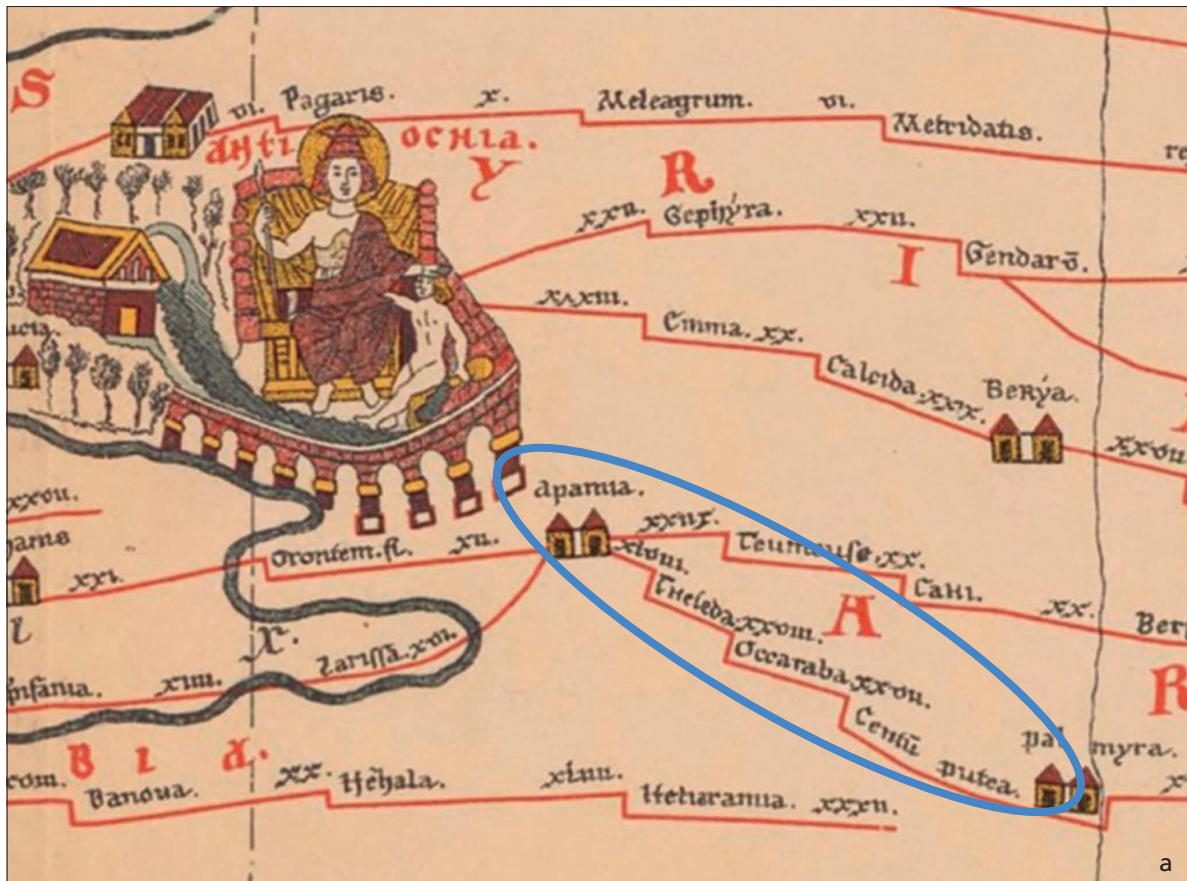 S
vi. Pagaris. x. Meleagrum. vi. Metridatis.
ANTIOCHIA.
Y R I A
xxii. Gephyra. xxii. Gendarō.
xxxiii. Emma. xx. Calcida. xxix. Berya. xxvii.
ucia.
xxvii.
apamia.
xxi. Orontem. fl. xii.
Teumeuse. xx. Cahi. xx. Ber
xlvii. Theleda. xxviii. Occaraba. xxvii. Centū putea. palmyra.
xiiii. Larissa. xvi.
R
B I A.
rom. Banoua. xx. Hehala. xlvii. Heturamia. xxxii.
a